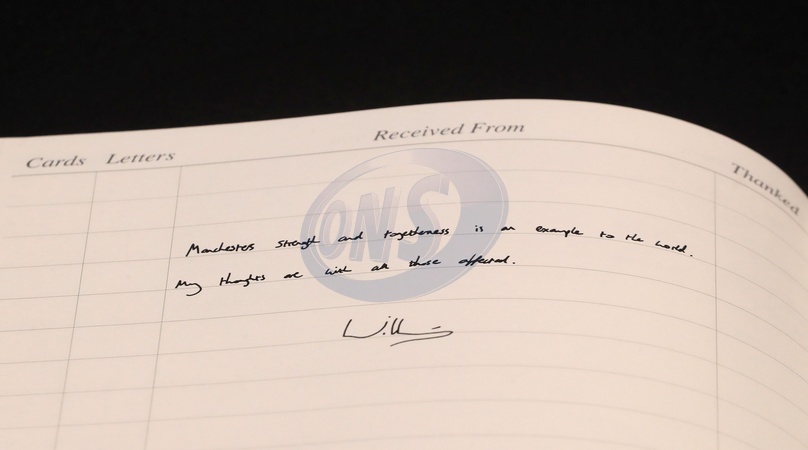 Received From
Cards Letters
Thanked
ONS
Manchesters strength and togetherness is an example to the world.
My thoughts are with all those affected.
William